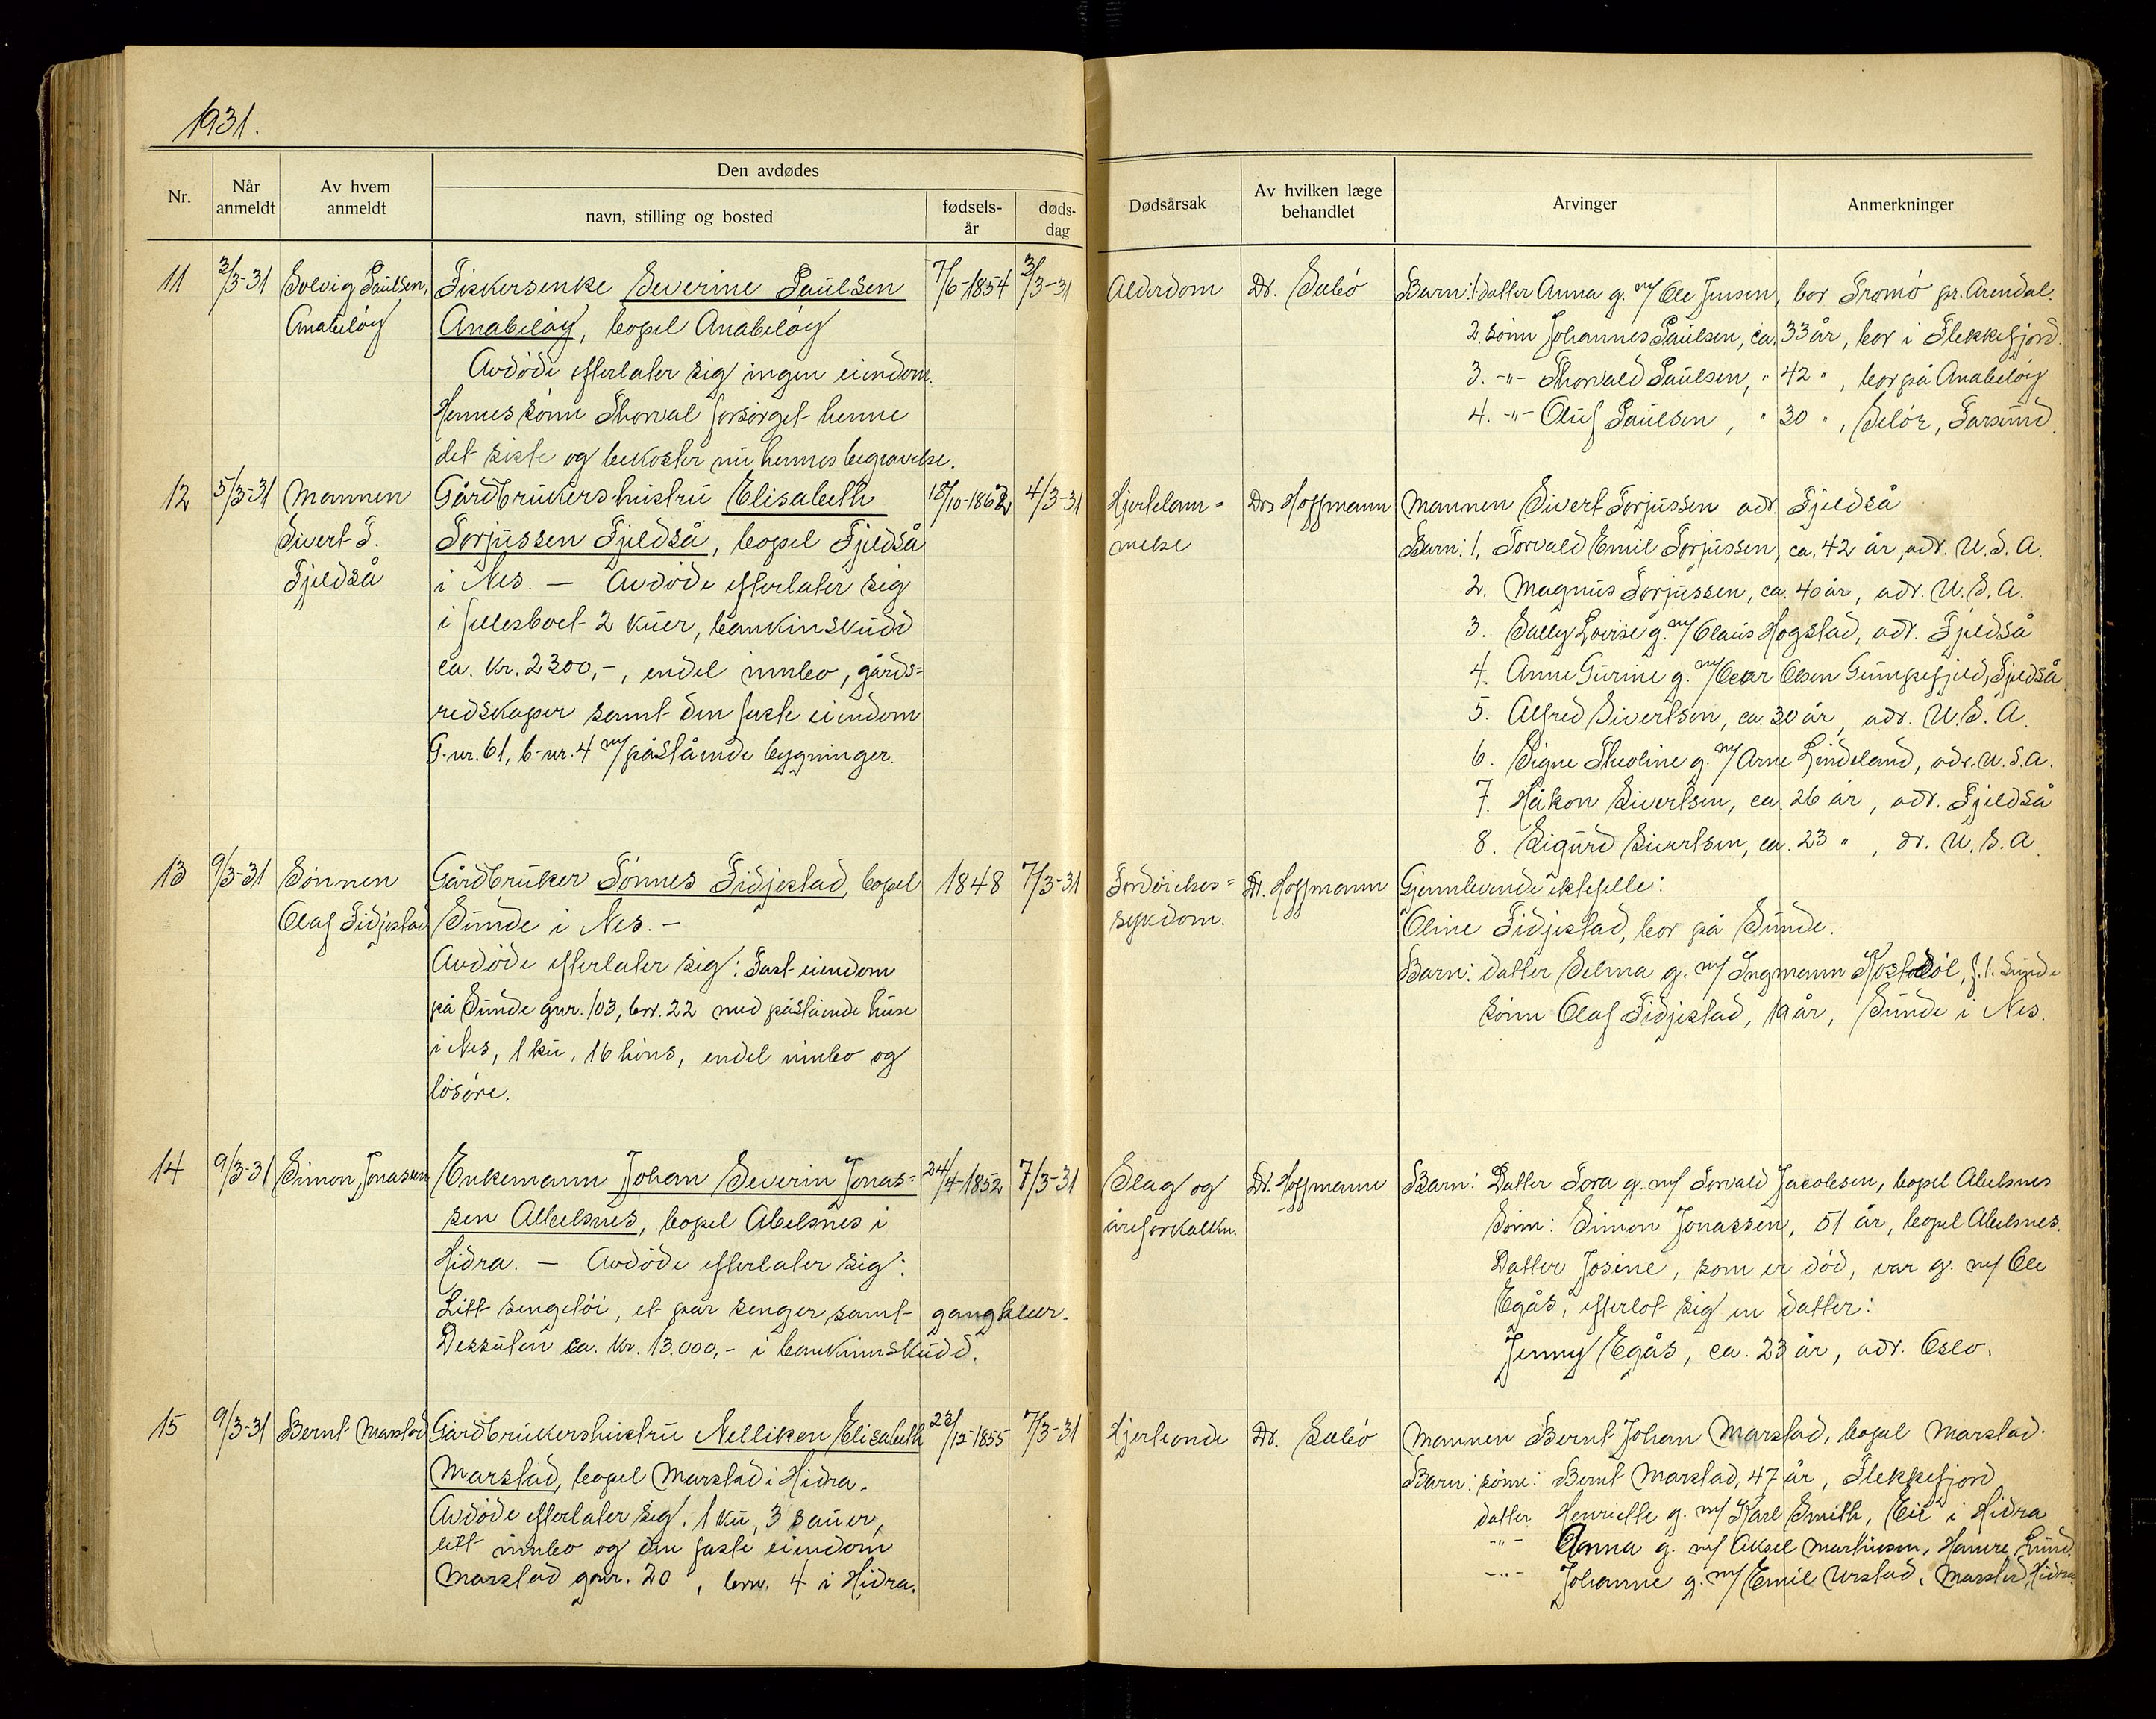 1931.
Nr.
Når anmeldt
Av hvem anmeldt
Den avdødes
navn, stilling og bosted
fødsels-år
døds-dag
Dødsårsak
Av hvilken læge behandlet
Arvinger
Anmerkninger
11 3/3-31 Solvig Paulsen, Fiskersenke Severine Paulsen 7/6-1854 3/3-31 Alderdom Dr. Barn: 1. datter Anna g. m/ Ole Jensen, bor Tromö pr. Arendal.
Anabeløy Anabeløy, bopel Anabeløy 2. sønn Johannes Paulsen, ca. 33 år, bor i Flekkefjord.
Avdøde efterlater sig ingen eiendom. 3. -"- Thorvald Paulsen, " 42 ", bor på Anabeløy
Hennes sønn Thorval forsørget henne 4. -"- Oluf Paulsen, " 30 ", Selör, Farsund.
det siste og bekoster nu hennes begravelse.
12 5/3-31 Mannen Gårdbrukershustru Elisabeth 18/10-1862 4/3-31 Hjertelam= Dr. Hoffmann Mannen Sivert Torjussen adr. Fjeldså
Sivert T. Torjussen Fjeldså, bopel Fjeldså melse Barn: 1. Torvald Emil Torjussen, ca. 42 år, adr. U.S.A.
Fjeldså i Nes. — Avdøde efterlater sig 2. Magnus Torjussen, ca. 40 år, adr. U.S.A.
i fellesboet 2 kuer, bankinskudd 3. Sally Lovise g. m/ Claus Hogstad, adr. Fjeldså
ca. kr. 2300,-, endel innbo, gårds= 4. Anne Gurine g. m/ Oskar Olsen Gumpefjeld, Fjeldså
redskaper samt den faste eiendom 5. Alfred Sivertsen, ca. 30 år, adr. U.S.A.
G.nr. 61, b-nr. 4 m/ påstående bygninger. 6. Signe Theoline g. m/ Arne Lindeland, adr. U.S.A.
7. Håkon Sivertsen, ca. 26 år, adr. Fjeldså
8. Sigurd Sivertsen, ca. 23 ", dr. U.S.A
13 9/3-31 Sønnen Gårdbruker Tønnes Fidjestad, bopel 1848 7/3-31 Fordøielses= Dr. Hoffmann Gjenlevende ektefelle:
Olaf Fidjestad Sunde i Nes. - sykdom. Oline Fidjestad, bor på Sunde.
Avdøde efterlater sig: Fast eiendom Barn: datter Selma g. m/ Ingmann Kostøl, f.t. Sunde
på Sunde gnr. 103, bnr. 22 med påstående huse sønn Olaf Fidjestad, 19 år, Sunde i Nes.
i Nes, 1 ku, 16 höns, endel innbo og
løsøre.
14 9/3-31 Simon Jonassen Enkemann Johan Severin Jonas= 24/4-1852 7/3-31 Slag og Dr. Hoffmann Barn: Datter Tora g. m/ Torvald Jacobsen, bopel Abelsnes
sen Abelsnes, bopel Abelsnes i åreforkalkn. Sønn: Simon Jonassen, 51 år, bopel Abelsnes.
Hidra. — Avdøde efterlater sig: Datter Josine, som er död, var g. m/ Ole
Litt sengetöi, et par senger samt gangklær. Egås, efterlot sig en datter:
Dessuten ca. kr. 13.000,- i bankinnskudd. Jenny Egås, ca. 23 år, adr. Oslo.
15 9/3-31 Bernt Marstad Gårdbrukershustru Nelliken Elisabeth 23/12-1855 7/3-31 Hjerteonde Dr. Mannen Bernt Johan Marstad, bopel Marstad.
Marstad, bopel Marstad i Hidra. Barn: sønn: Bernt Marstad, 47 år, Flekkefjord
Avdøde efterlater sig: 1 ku, 3 sauer, datter Henriette g. m/ Karl Smith, Eie i Hidra
litt innbo og den faste eiendom -"- Anna g. m/ Aksel Marthinsen, Hamre, Lund.
Marstad gnr. 20, bnr. 4 i Hidra. -"- Johanne g. m/ Emil Urstad, Marstad, Hidra